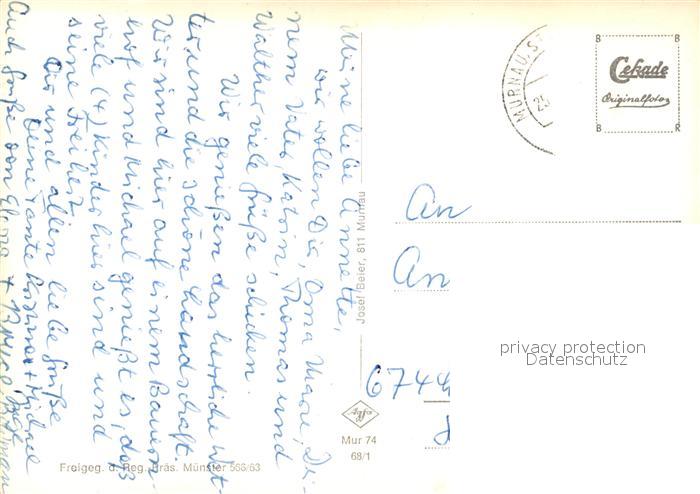 Meine liebe Annette,
wir wollen Dir, Oma Marie, Dei-
nem Vater, Katrin, Thomas und
Walther viele Grüße schicken.
Wir genießen das herrliche Wet-
ter und die schöne Landschaft.
Wir sind hier auf einem Bauern-
hof und Michael genießt es, daß
viele (4) Kinder hier sind und
seine Freiheit.
Dir und allen liebe Grüße
Deine Tante + Michael
Auch Grüße von + 
Josef Beier, 811 Murnau
Freigeg. d. Reg. Präs. Münster 566/63
Agfa
Mur 74
68/1
MURNAU.S
25
B B
Cekade
Originalfoto
B R
An
An
6744
privacy protection
Datenschutz